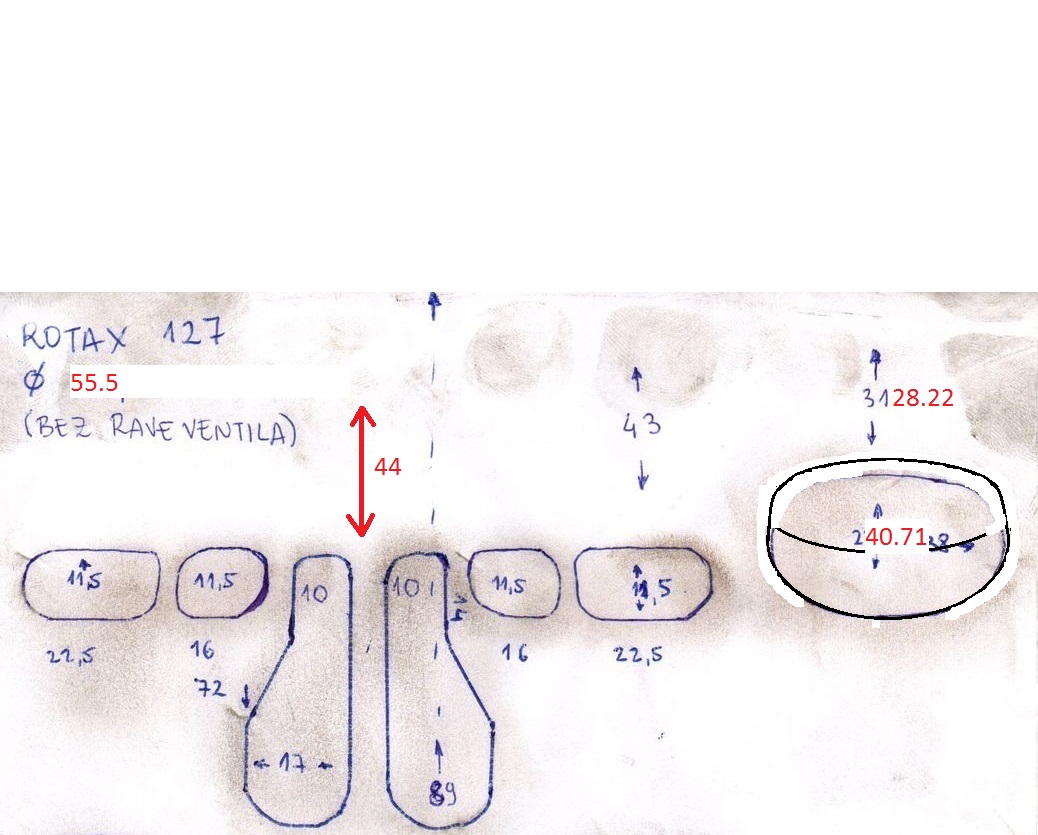 ROTAX 127
Ø 55.5
(BEZ RAVE VENTILA)
44
43
3128.22
40.71
11,5
11,5
10
10
11,5
11,5
22,5
16
16
22,5
72
17
89